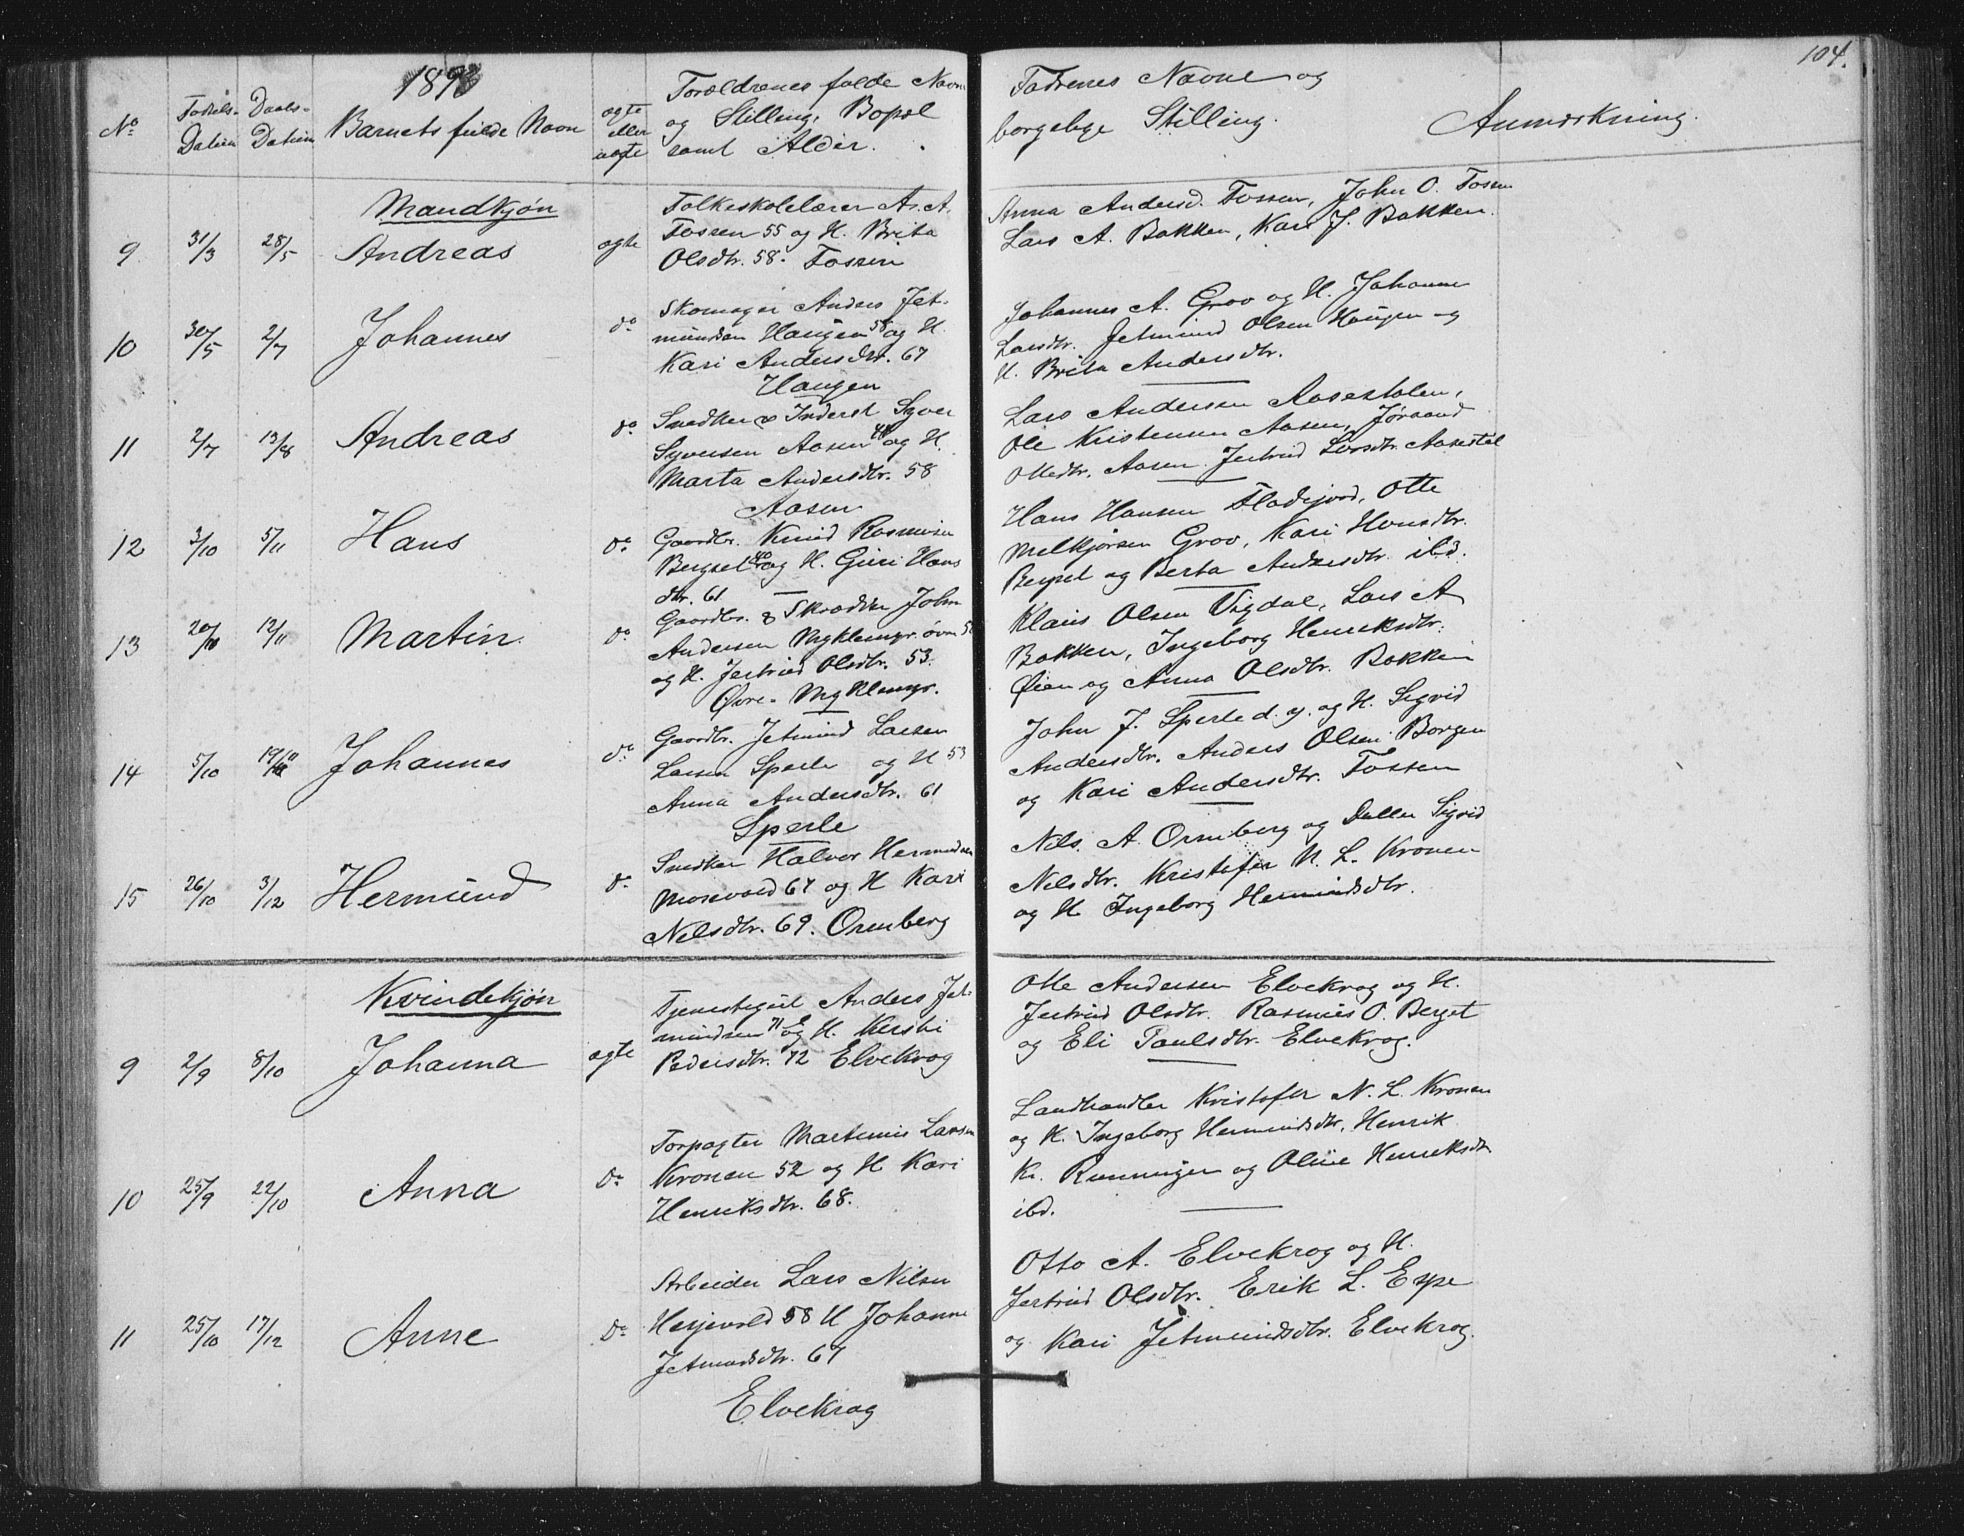 104.
1893
No
Fødsels-
Datum
Daabs-
Datum
Barnets fulde Navn
ægte
eller
uægte
Forældrenes fulde Navn
og Stilling, Bopæl
samt Alder.
Fadrenes Navne og
borgelige Stilling.
Anmærkning.
Mandkjøn
9 31/3 28/5 Andreas ægte
Folkeskolelærer A. A.
Fossen 55 og H. Brita
Olsdtr. 58. Fossen
Anna Andersd. Fossen, John O. Fossen
Lars A. Bakken, Kari J. Bakken.
10 30/5 2/7 Johannes do
Skomager Anders Jet-
mundsen Haugen 58 og H.
Kari Andersdtr. 67
Haugen
Johannes A. Grov og H. Johanne
Larsdtr. Jetmund Olsen Haugen og
H. Brita Andersdtr.
11 2/7 13/8 Andreas do
Snedker & Inderst Syver
Syversen Aasen og H.
Marta Andersdtr. 58
Aasen
Lars Andersen Aasestølen,
Ole Kristensen Aasen, Jøraand
Ottedtr. Aasen. Jertrud Larsdtr. Aasestøl
12 3/10 5/11 Hans do
Gaardbr. Knud Rasmusen
Bergset 40 og H. Guri Hans
dtr. 61
Hans Hansen Fladejord, Otte
Melkjorsen Grov, Kari Hansdtr.
Bergset og Berta Andersdtr. ibd.
13 20/10 12/11 Martin do
Gaardbr. & Skrædder John
Andersen Myklemyr. øvre
og H. Jertrud Olsdtr. 53.
Øvre-Myklemyr.
Klaus Olsen Vigdal, Lars A
Bakken, Ingeborg Henriksdtr.
Øien og Anna Olsdtr. Bakken
14 5/10 19/11 Johannes do
Gaardbr. Jetmund Larsen
Larsen Sperle og H 53
Anna Andersdtr. 61
Sperle
John J. Sperle d. y. og H. Sigrid
Andersdtr. Anders Olsen Borgen
og Kari Andersdtr. Fossen
15 26/10 3/12 Hermund do
Snedker Halvor Hermundsen
Morevold 67 og H Kari
Nelsdtr. 69. Ormberg
Nils. A. Ormberg og Datter Sigrid
Nelsdtr. Kristofer N. L. Kronen
og H Ingeborg Hermundsdtr.
Kvindekjøn
9 2/9 8/10 Johanna ægte
Tjenestegut Anders Jet-
mundsen 71 og H. Kersti
Pedersdtr. 72 Elvekrog
Otte Andersen Elvekrog og H.
Jertrud Olsdtr. Rasmus O. Berget
og Eli Paulsdtr. Elvekrog.
10 25/9 22/10 Anna do
Forpagter Martinus Larsen
Kronen 52 og H Kari
Henriksdtr. 68.
Landhandler Kristofer N. L. Kronen
og H. Ingeborg Hermundsdtr, Henrik
Kr. Rønningen og Oline Henriksdtr
ibd.
11 25/10 17/12 Anne do
Arbeider Lars Nilsen
Hesjevold 58 H Johanne
Jetmundsdtr. 67
Elvekrog
Otto A. Elvekrog og H.
Jertrud Olsdtr. Erik L. Espe
og Kari Jetmundsdtr. Elvekrog.